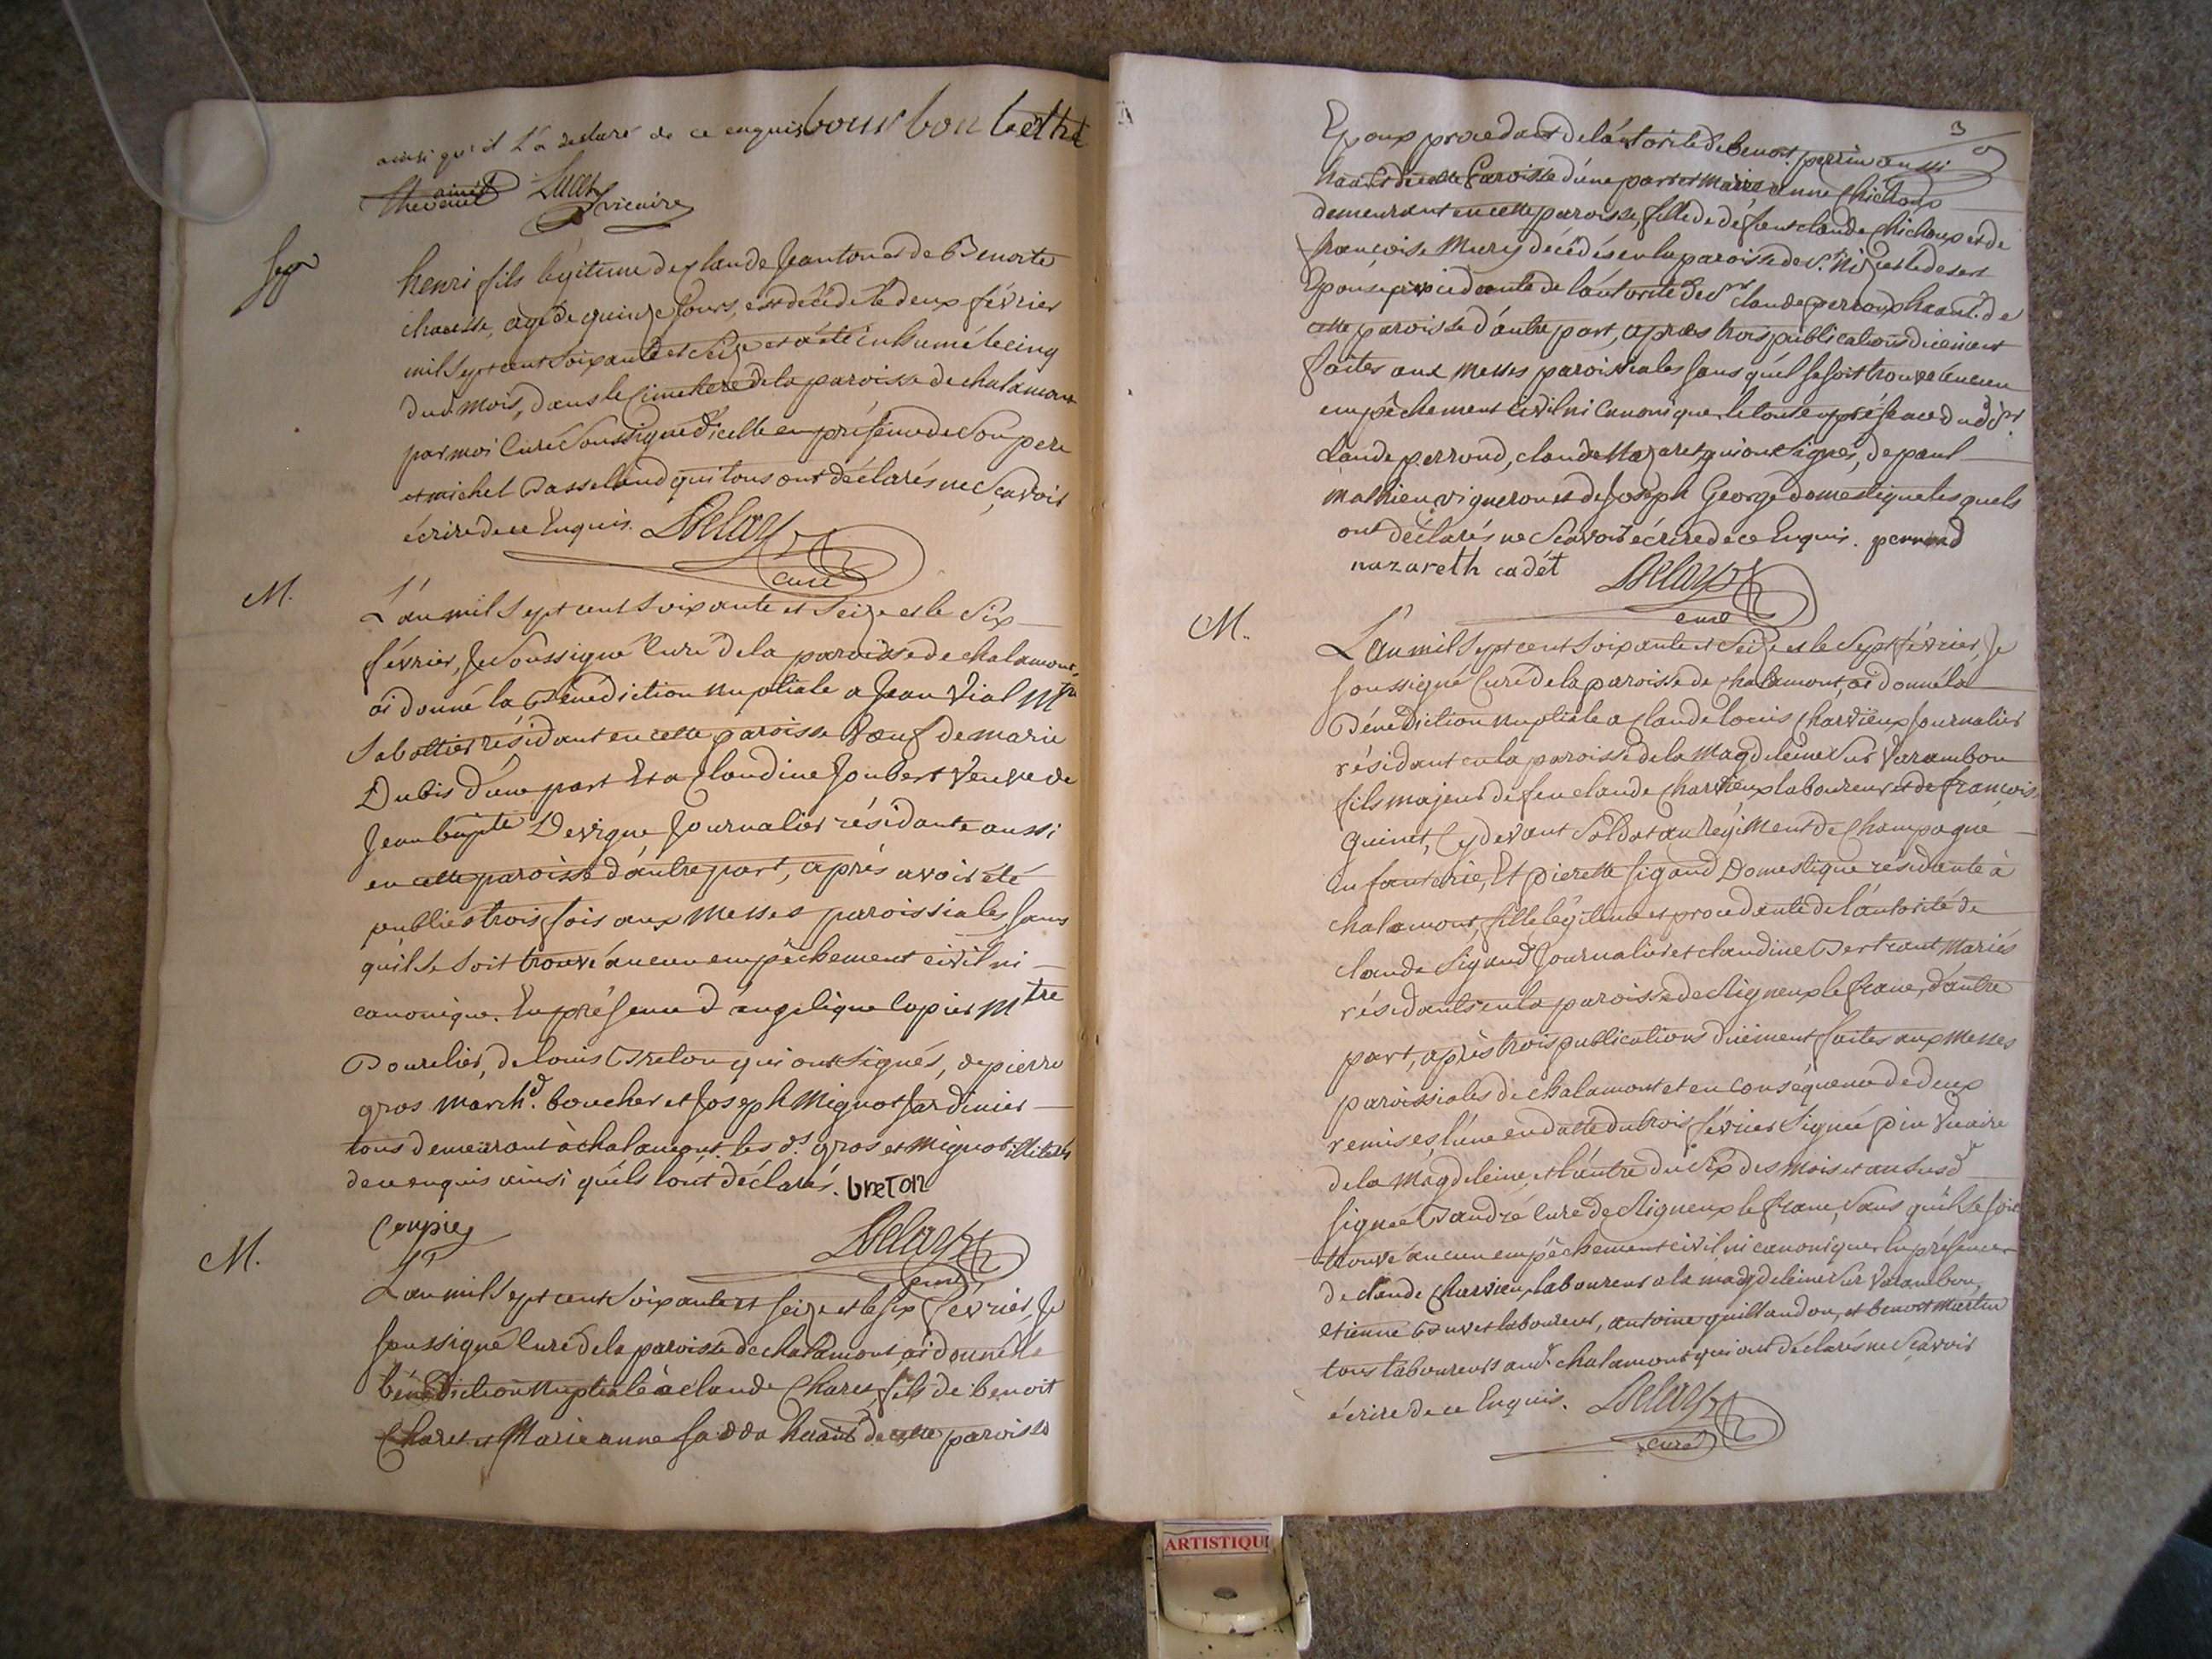 ainsi qu'il l'a declaré de ce enquis bourbon
thevenet ainé Lucas vicaire
Sepr
henri fils légitime de claude Jeanton et de Benoite
chanesse, agé de quinze Jours, est décédé le deux février
mil sept cent Soixante et Seize et a été inhumé le cinq
dud. mois, dans le Cimetiere de la paroisse de chalamont
par moi Curé Soussigné d'icelle en présence de Son pere
et michel Passeland qui tous ont déclarés ne Scavoir
écrire de ce Enquis. Delary
curé
M.
L'an mil Sept cent Soixante et Seize et le Six
février, Je Soussigné Curé de la paroisse de chalamont
ai donné la Bénédiction Nuptiale a Jean Vial Mtre
Sabottier résidant en cette paroisse Vœuf de marie
Dubis d'une part Et a Claudine Joubert Veuve de
Jean bapte Devigne Journalier résidante aussi
en cette paroisse d'autre part, après avoir été
publies trois fois aux Messes paroissiales Sans
qu'il Se Soit trouvé aucun empêchement civil ni
canonique. En présence d'angelique Copier Mtre
Bourelier, de louis Breton qui ont Signés, de pierre
gros march.d boucher et Joseph Mignot Jardinier
tous demeurant à chalamont. les d.s gros et Mignot illiterés
de ce enquis ainsi qu'ils l'ont déclarés. breton
Coupier Delary
curé
M.
L'an mil Sept cent Soixante et Seize et le six février, Je
Soussigné Curé de la paroisse de chalamont, ai donné la
bénédiction Nuptiale à claude Charet, fils de benoit
Charet et Marie anne hants de cette paroisse
3
Epoux procedant de l'autorité de benoit perrin aussi
hant de cette Paroisse d'une part et Marie anne Chichoux
demeurant en cette paroisse, fille de defunt claude Chichoux et de
françoise Mury décédés en la paroisse de St. Nizier le desert
Epouse procedante de l'autorité de Sr claude perroud hant. de
cette paroisse d'autre part, après trois publications duement
faites aux Messes paroissiales Sans qu'il Se Soit trouvé aucun
empêchement Civil ni Canonique le tout en présence dud Sr.
claude perroud, claude Nazaret, qui ont Signés, de paul
mathieu vigneron et de Joseph George domestique lesquels
ont déclarés ne Scavoir écrire de ce Enquis. perroud
nazareth cadét Delary
curé
M.
L'an mil Sept cent Soixante et Seize et le Sept février, Je
Soussigné Curé de la paroisse de chalamont, ai donné la
Bénédiction Nuptiale a Claude louis Charvieux Journalier
résidant en la paroisse de la Magdeleine Sur Varambon
fils majeur de feu claude Charvieux laboureur et de françoise
Guinet, Cy devant Soldat au Regiment de Champagne
infanterie, Et pierette Sigaud Domestique résidante à
chalamont, fille légitime et procedante de l'autorité de
claude Sigaud Journalier et claudine Bertrant Mariés
résidants en la paroisse de Rigneux le franc, d'autre
part, après trois publications duement faites aux Messes
paroissiales de chalamont et en conséquence de deux
remises, l'une en datte du trois février Signée pin Vicaire
de la Magdeleine, et l'autre du Six des mois et an Susd
Signée André Curé de Rigneux le franc, Sans qu'il Se Soit
trouvé aucun empêchement civil ni canonique. En présence
de claude Charvieux laboureur a la magdeleine Sur Varambon,
etienne laboureur, antoine guillaudon, et benoit Martin
tous laboureurs aud. chalamont qui ont déclarés ne Scavoir
écrire de ce Enquis. Delary
curé
ARTISTIQU